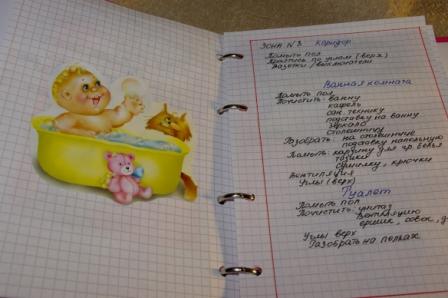 ЗОНА №3 Коридор
Помыть пол
Пройтись по углам (верх)
Розетки / выключатели
Ванная комната
Помыть пол
Почистить: ванну
кафель
сан. технику
подставку на ванну
зеркало
столешницу
Разобрать: на столешнице
подставку напольную
Помыть: корзину для гр. белья
тазики
сушилку, крючки
Вентиляция
Углы (верх)
Туалет
Помыть пол
Почистить: унитаз
вентиляцию
ершик, совок,
Углы верх
Разобрать на полках